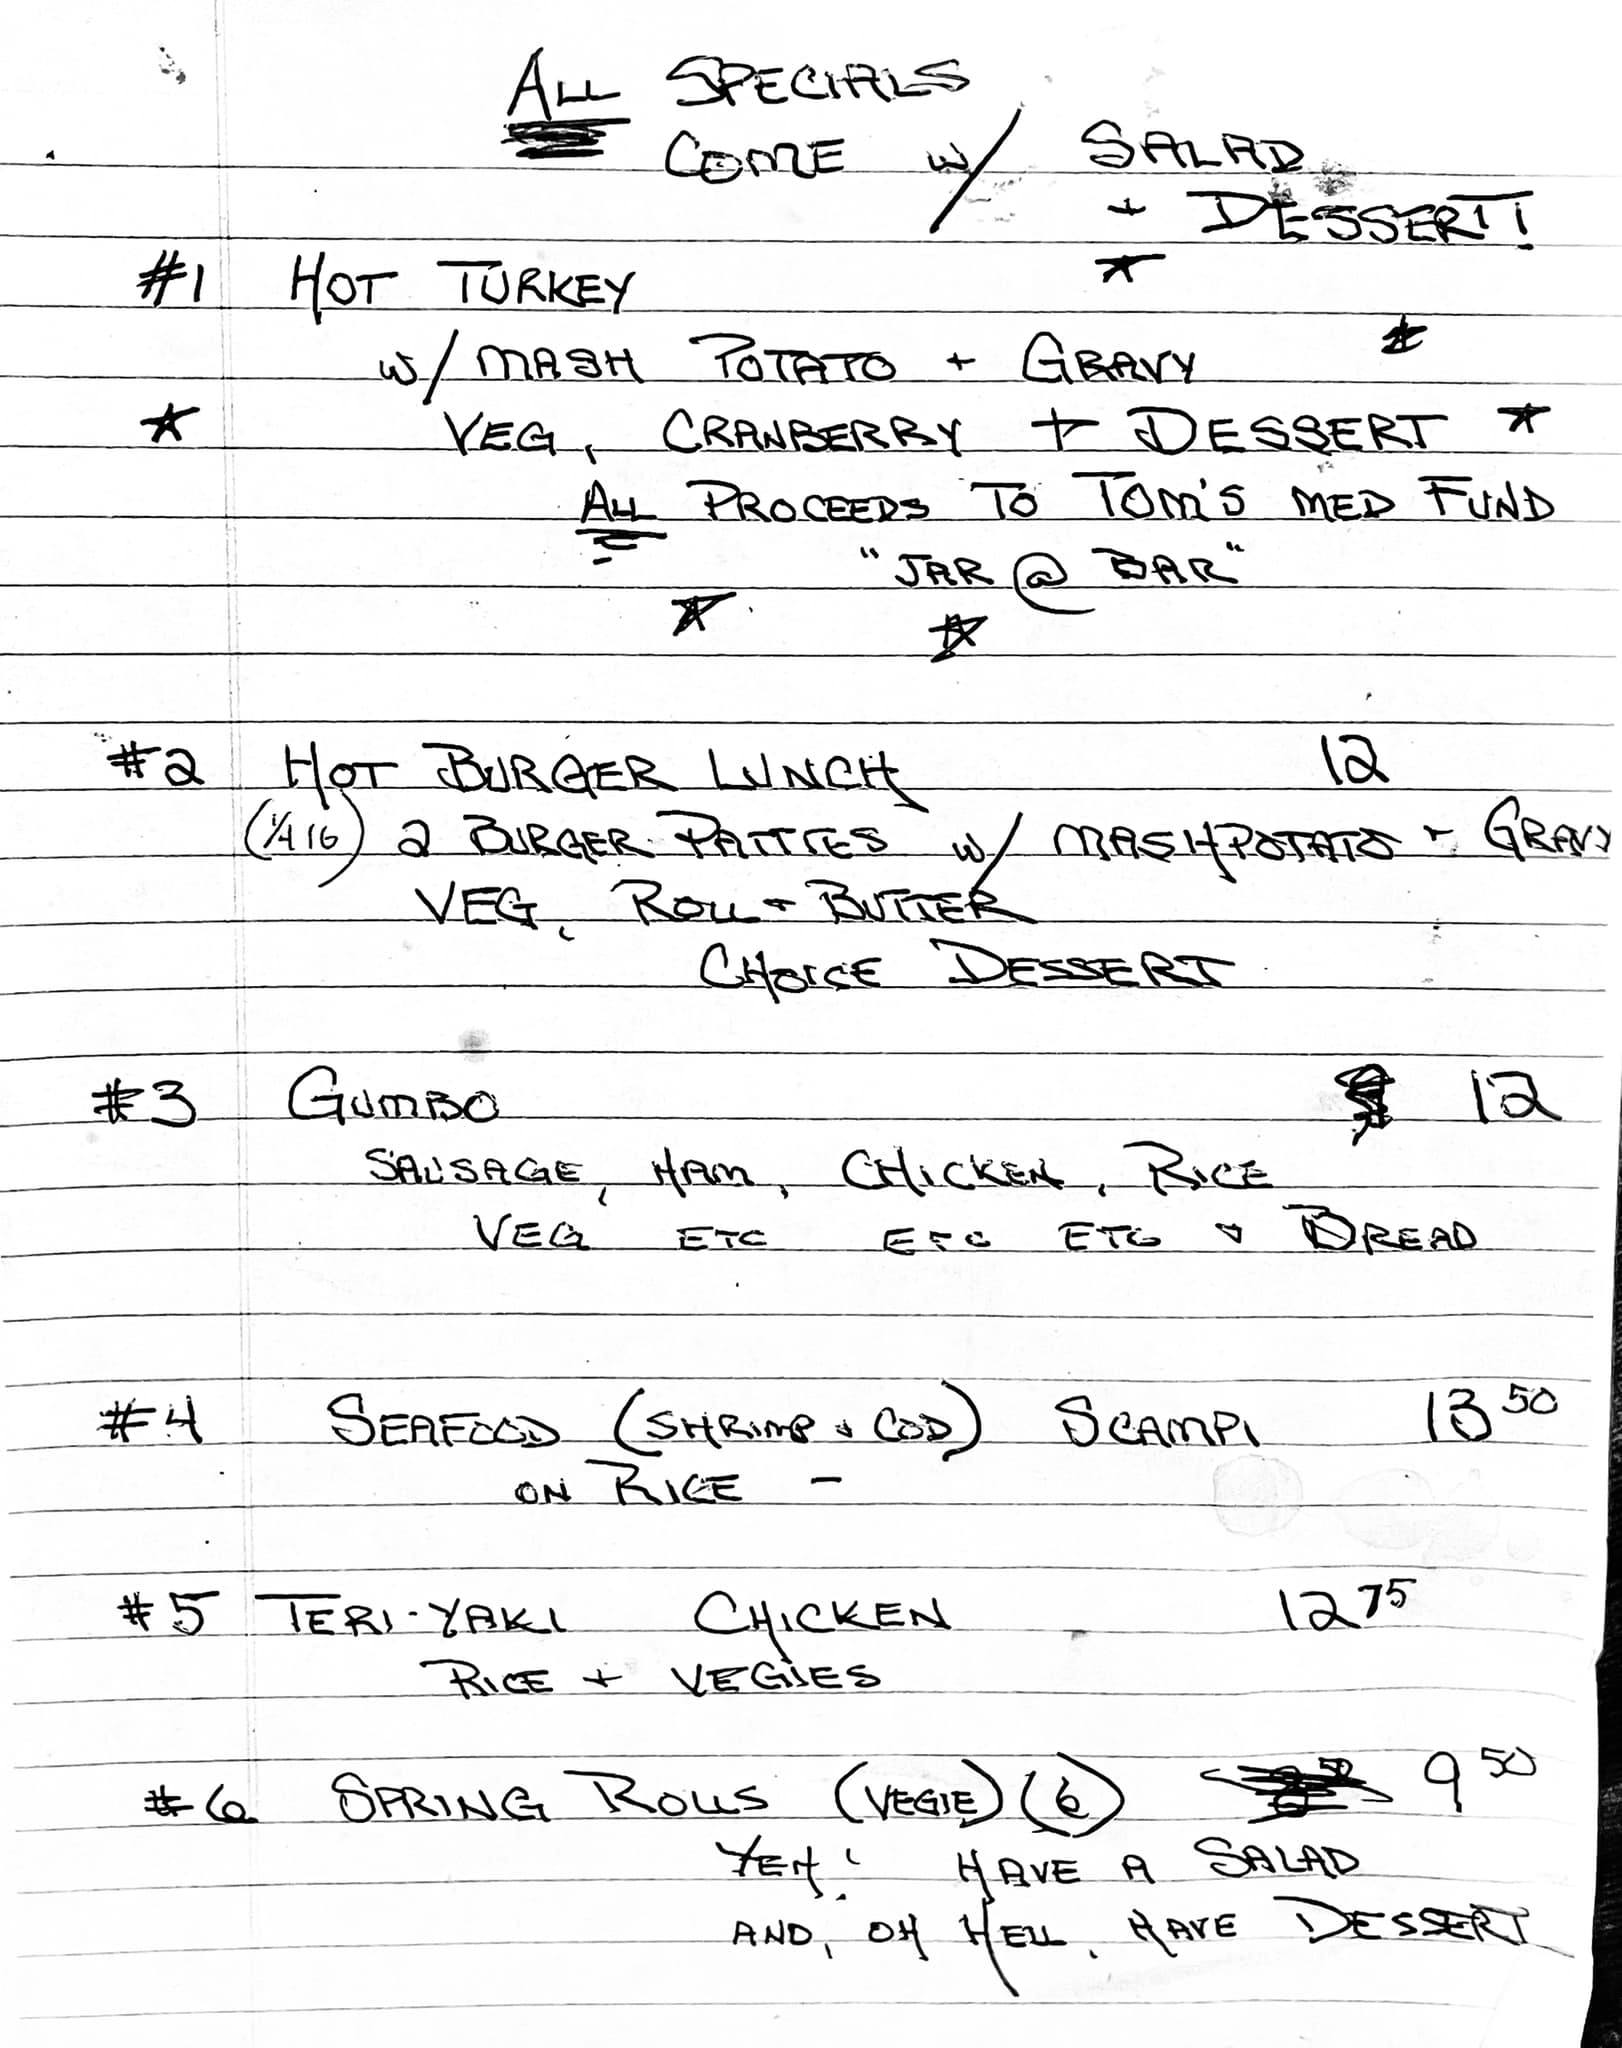 ALL SPECIALS
COME w/ SALAD
+ DESSERT!
#1 HOT TURKEY
w/ MASH POTATO + GRAVY
VEG, CRANBERRY + DESSERT
ALL PROCEEDS TO TOM'S MED FUND
"JAR @ BAR"
#2 HOT BURGER LUNCH 12
(1/4 lb) 2 BURGER PATTIES w/ MASHPOTATO + GRAVY
VEG, ROLL + BUTTER
CHOICE DESSERT
#3 GUMBO 12
SAUSAGE, HAM, CHICKEN, RICE
VEG ETC ETC ETC + BREAD
#4 SEAFOOD (SHRIMP + COD) SCAMPI 13 50
ON RICE -
#5 TERI-YAKI CHICKEN 12 75
RICE + VEGIES
#6 SPRING ROLLS (VEGIE) (6) 9 50
YEH! HAVE A SALAD
AND, OH HELL, HAVE DESSERT